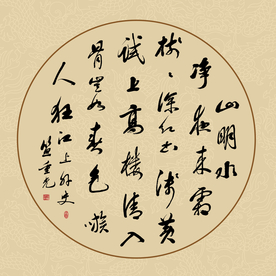 山明水
净夜来霜
树々深红出浅黄
试上高楼清入
骨岂如春色嗾
人狂 江上外史
笪重光